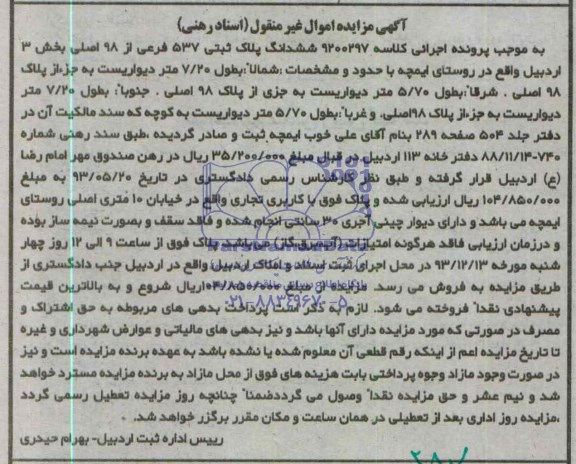 آگهی مزایده اموال غیر منقول (اسناد رهنی)
به موجب پرونده اجرائی کلاسه ۹۲۰۰۲۹۷ ششدانگ پلاک ثبتی ۵۳۷ فرعی از ۹۸ اصلی بخش ۳
اردبیل واقع در روستای ایمچه با حدود و مشخصات :شمالا":بطول ۷/۲۰ متر دیواریست به جزءاز پلاک
۹۸ اصلی . شرقا":بطول ۵/۷۰ متر دیواریست به جزی از پلاک ۹۸ اصلی . جنوبا": بطول ۷/۲۰ متر
دیواریست به جزءاز پلاک ۹۸اصلی. و غربا":بطول ۵/۷۰ متر دیواریست به کوچه که سند مالکیت آن در
دفتر جلد ۵۰۴ صفحه ۲۸۹ بنام آقای علی خوب ایمچه ثبت و صادر گردیده ،طبق سند رهنی شماره
۷۴۰-۸۸/۱۱/۱۴ دفتر خانه ۱۱۳ اردبیل در قبال مبلغ ۳۵/۲۰۰/۰۰۰ ریال در رهن صندوق مهر امام رضا
(ع) اردبیل قرار گرفته و طبق نظر کارشناس رسمی دادگستری در تاریخ ۹۳/۰۵/۲۰ به مبلغ
۱۰۴/۸۵۰/۰۰۰ ریال ارزیابی شده و پلاک فوق با کاربری تجاری واقع در خیابان ۱۰ متری اصلی روستای
ایمچه می باشد و دارای دیوار چینی آجری ۳۰ سانتی انجام شده و فاقد سقف و بصورت نیمه ساز بوده
و درزمان ارزیابی فاقد هرگونه امتیازات (آب،برق،گاز) می‌باشد. پلاک فوق از ساعت ۹ الی ۱۲ روز چهار
شنبه مورخه ۹۳/۱۲/۱۳ در محل اجرای ثبت اسناد و املاک اردبیل واقع در اردبیل جنب دادگستری از
طریق مزایده به فروش می رسد. مزایده از مبلغ ۱۰۴/۸۵۰/۰۰۰ریال شروع و به بالاترین قیمت
پیشنهادی نقدا" فروخته می شود. لازم به ذکر است پرداخت بدهی های مربوطه به حق اشتراک و
مصرف در صورتی که مورد مزایده دارای آنها باشد و نیز بدهی های مالیاتی و عوارض شهرداری و غیره
تا تاریخ مزایده اعم از اینکه رقم قطعی آن معلوم شده یا نشده باشد به عهده برنده مزایده است و نیز
در صورت وجود مازاد وجوه پرداختی بابت هزینه های فوق از محل مازاد به برنده مزایده مسترد خواهد
شد و نیم عشر و حق مزایده نقدا" وصول می گرددضمنا" چنانچه روز مزایده تعطیل رسمی گردد
،مزایده روز اداری بعد از تعطیلی در همان ساعت و مکان مقرر برگزار خواهد شد.
رییس اداره ثبت اردبیل- بهرام حیدری
۰۲۱-۸۸۳۴۹۶۷۰-۵